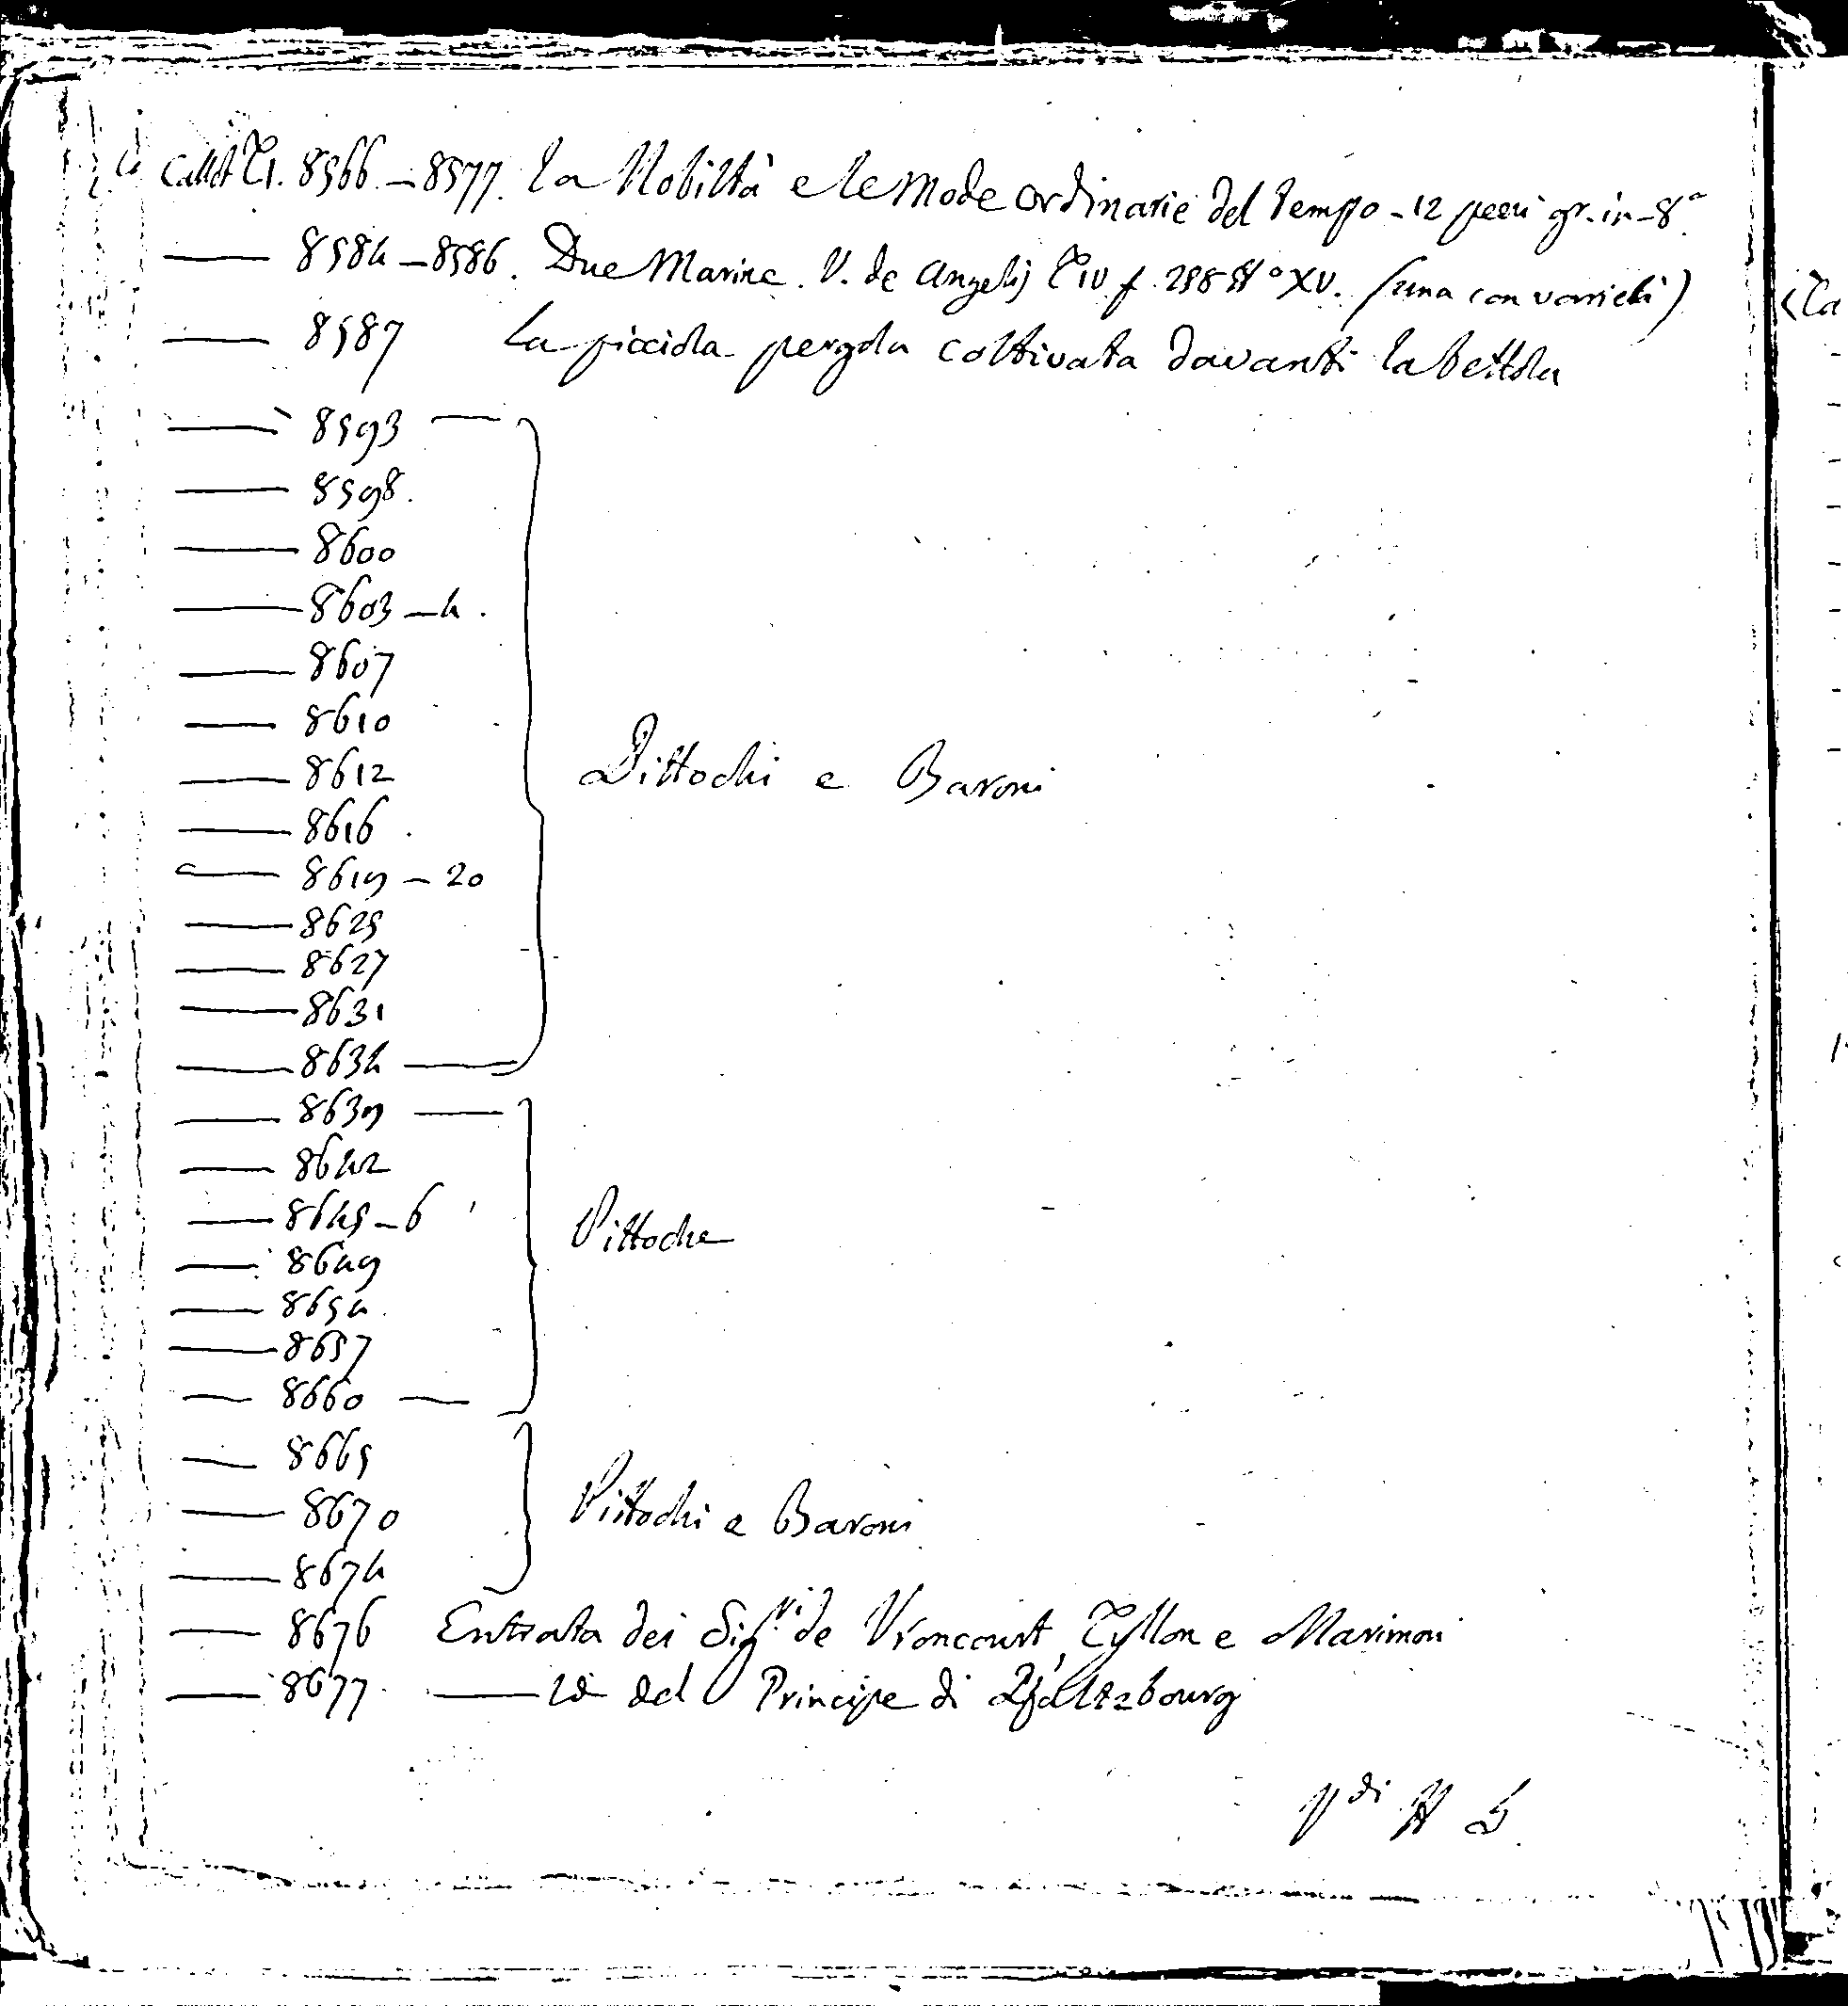 Callot T. I. 8566 – 8577. La Nobiltà e le Mode ordinarie del tempo – 12 pezzi gr. in – 8°.
—— 8584 – 8586. Due Marine. V. de Angelis T IV f. 258 N° XV. (una con varietà)
—— 8587 La picciola pergola coltivata davanti la bettola
—— 8593 ——
—— 8598.
—— 8600
—— 8603 – 4.
—— 8607
—— 8610
—— 8612 Pittochi e Baroni
—— 8616
—— 8619 – 20
—— 8625
—— 8627
—— 8631
—— 8634 ——
—— 8639 ——
—— 8642
—— 8645 – 6 Pittoche
—— 8649
—— 8654
—— 8657
—— 8660 ——
—— 8665
—— 8670 Pittochi e Baroni
—— 8674
—— 8676 Entrata dei Sig.ri de Vroncourt, Tyllon e Marimon
—— 8677 —— id del Principe di Pfaltzbourg
Vdi N 5.